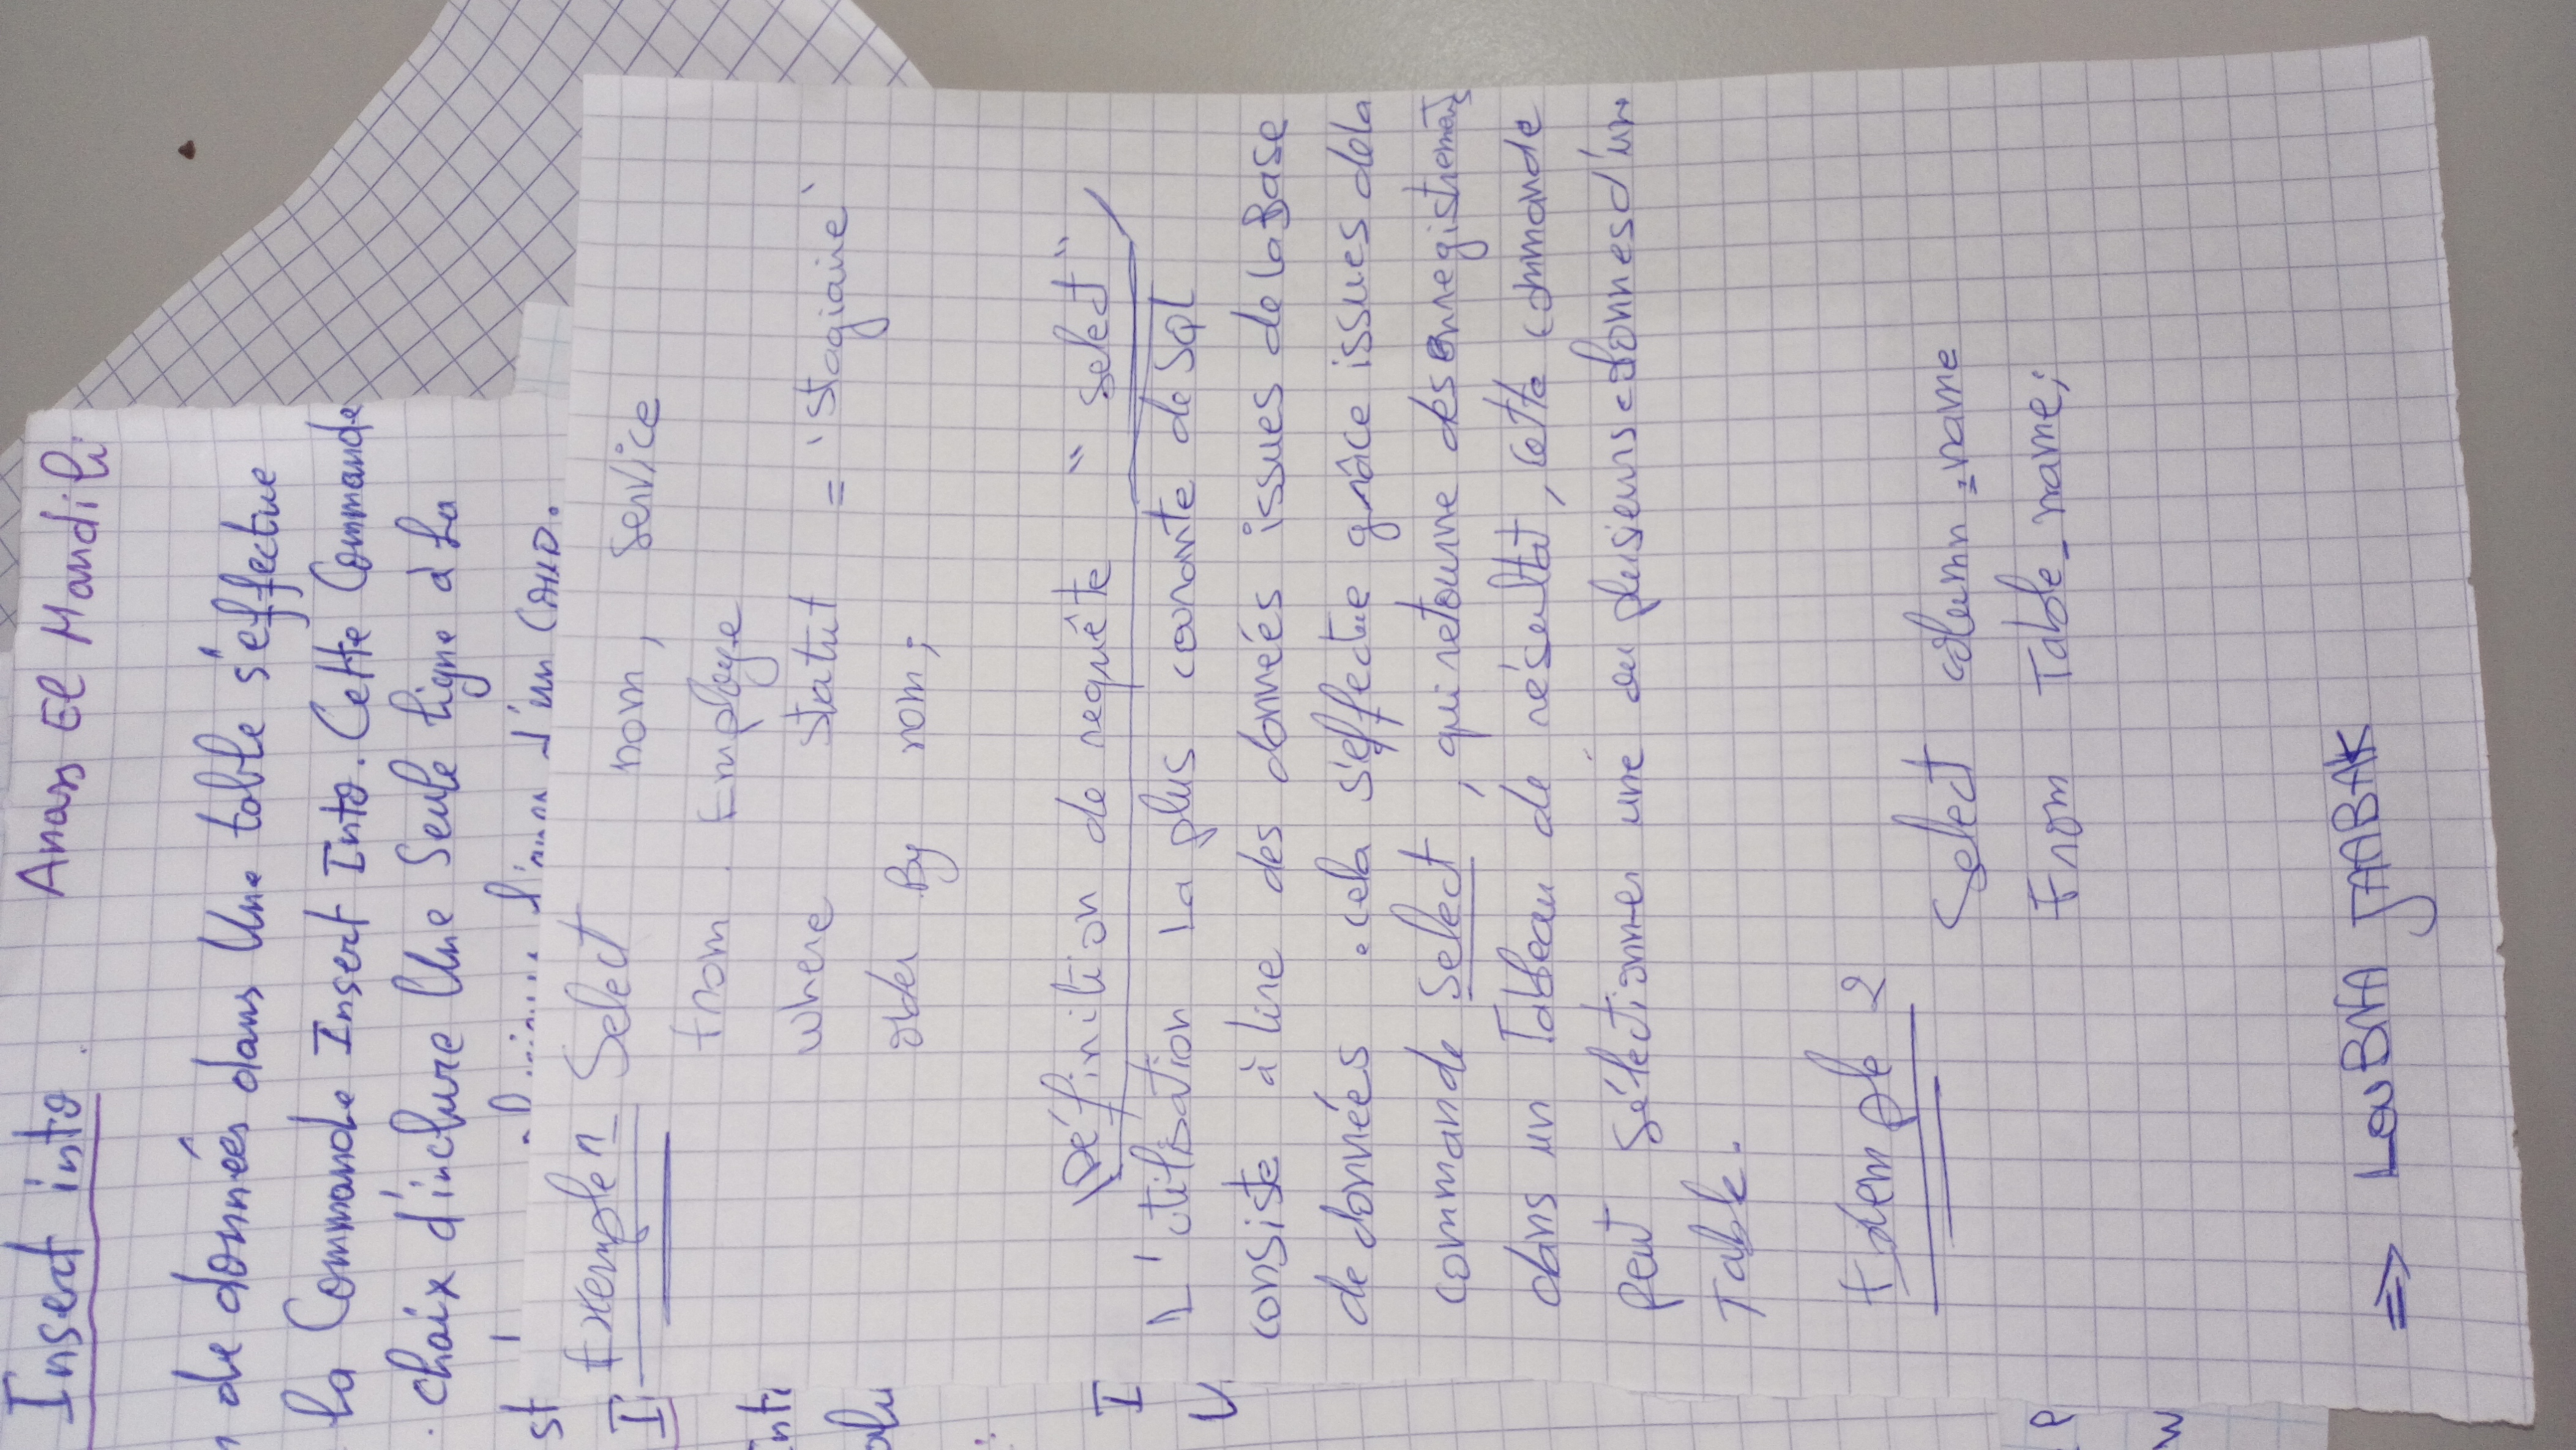 Insert into. Anass El Mandili
de données dans Une table s'effectue
la Commande Insert Into. Cette Commande
choix d'inclure Une Seule ligne à la
st d'un
Exemple 1 Select nom, service
from Employe
where statut = 'stagiaire'
order By nom;
Définition de requête "select"
L'utilisation La plus courante de SQL
consiste à lire des données issues de la Base
de données . cela s'effectue grâce issues de la
commande select, qui retourne des enregistrements
dans un Tableau de résultat, cette commande
peut sélectionner une ou plusieurs colonnes d'une
Table.
Exemple 2
Select column_name
From Table_name;
⇒ LOUBNA JAABAK